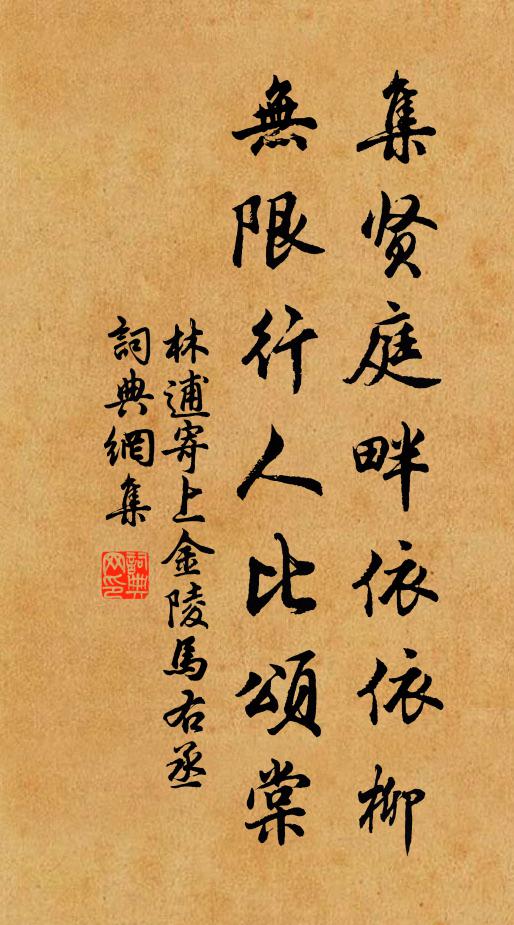 集贤庭畔依依柳
無限行人比頌棠
林逋寄上金陵馬右丞
詞典網集
詞典
网印